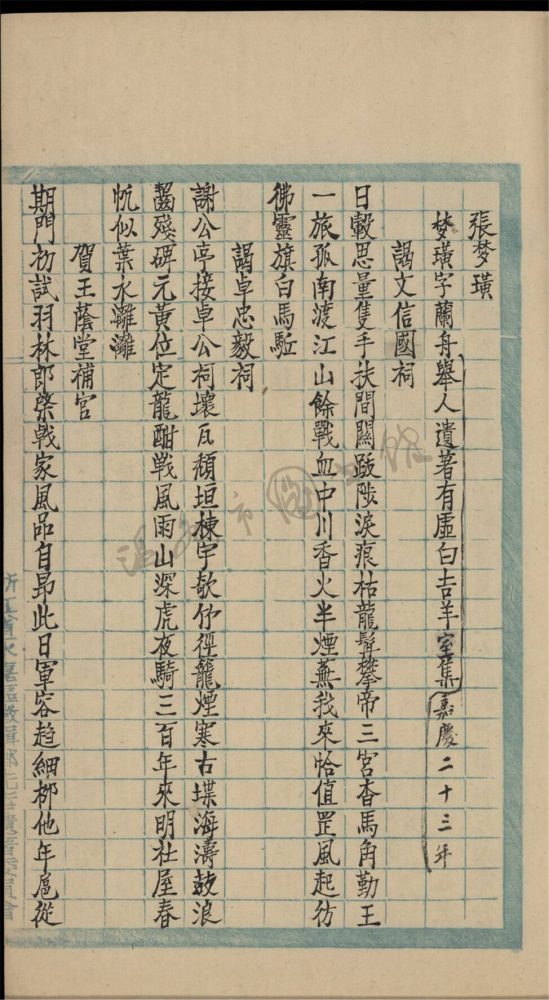 張梦璜
梦璜字蘭舟舉人遺著有虛白吉羊室集(嘉慶二十三年)
謁文信國祠
日轂思量隻手扶間關跋陟淚痕枯龍髯攀帝三宮杳馬角勤王
一旅孤南渡江山餘戰血中川香火半煙蕪我來恰值罡風起彷
彿靈旗白馬駈
謁卓忠毅祠
謝公亭接卓公祠壞瓦頹垣棟宇欹竹徑籠煙寒古堞海濤鼓浪
齧殘碑元黃位定龍酣戰風雨山深虎夜騎三百年來明社屋春
忱似葉水灕灕
賀王蔭堂補官
期門初試羽林郎棨戟家風品自昻此日軍容趨細栁他年扈從
温州市圖書館